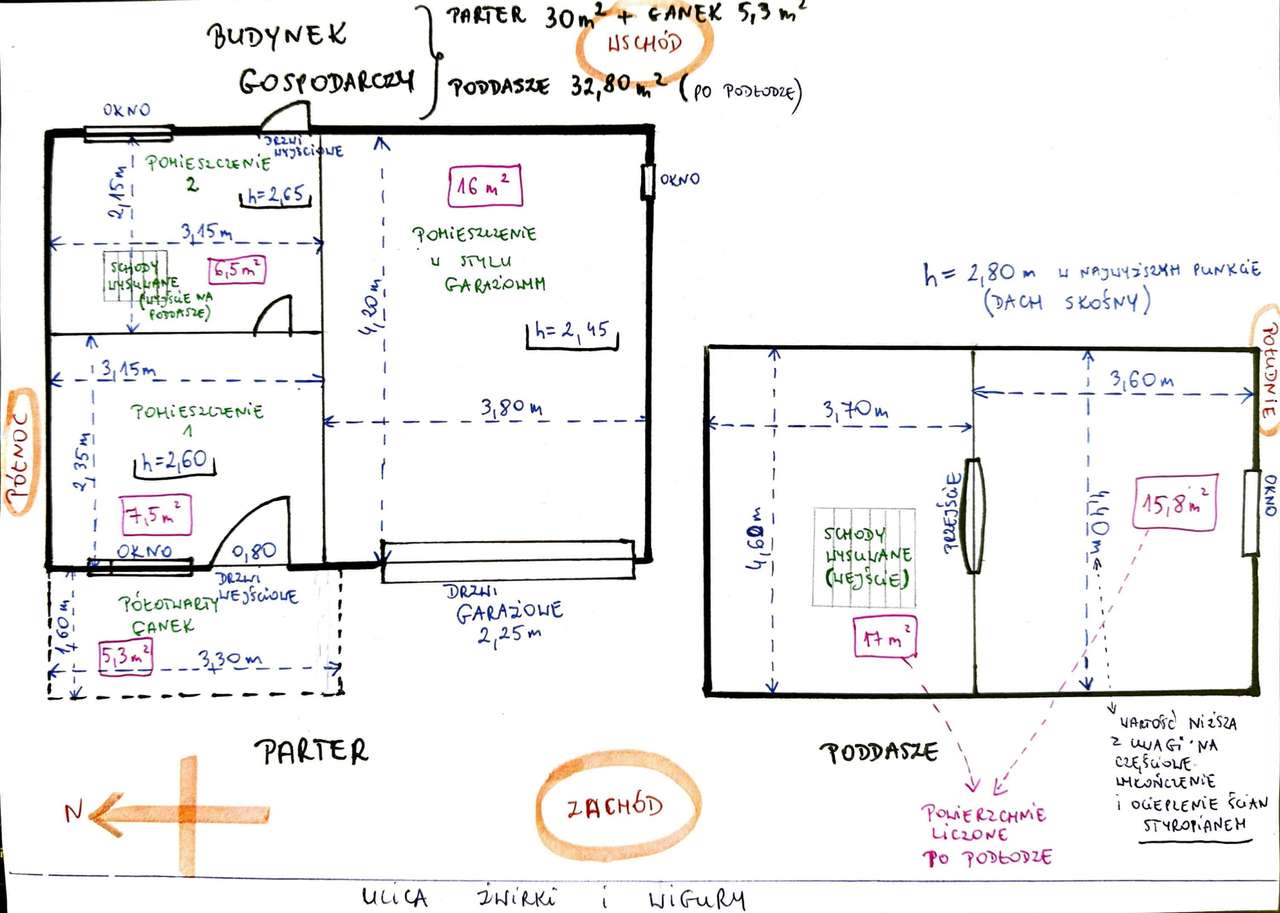 BUDYNEK
GOSPODARCZY
PARTER 30m² + GANEK 5,3 m²
WSCHÓD
PODDASZE 32,80 m² (PO PODŁODZE)
OKNO
DRZWI
WYJŚCIOWE
POMIESZCZENIE
2
h=2,65
2,15m
3,15m
6,5m²
SCHODY
WYSUWANE
(WYJŚCIE NA
PODDASZE)
16 m²
OKNO
POMIESZCZENIE
W STYLU
GARAŻOWYM
4,20m
h=2,45
3,80m
PÓŁNOC
3,15m
POMIESZCZENIE
1
h=2,60
2,35m
7,5m²
OKNO
0,80
DRZWI
WEJŚCIOWE
PÓŁOTWARTY
GANEK
1,60m
5,3m²
3,30m
DRZWI
GARAŻOWE
2,25m
PARTER
h= 2,80 m W NAJWYŻSZYM PUNKCIE
(DACH SKOŚNY)
POŁUDNIE
3,70m
3,60m
PRZEJŚCIE
4,60m
4,40m
15,8m²
OKNO
SCHODY
WYSUWANE
(WEJŚCIE)
17m²
PODDASZE
WARTOŚĆ NIŻSZA
Z UWAGI NA
CZĘŚCIOWE
WYKOŃCZENIE
I OCIEPLENIE ŚCIAN
STYROPIANEM
POWIERZCHNIE
LICZONE
PO PODŁODZE
N
ZACHÓD
ULICA ŻWIRKI i WIGURY